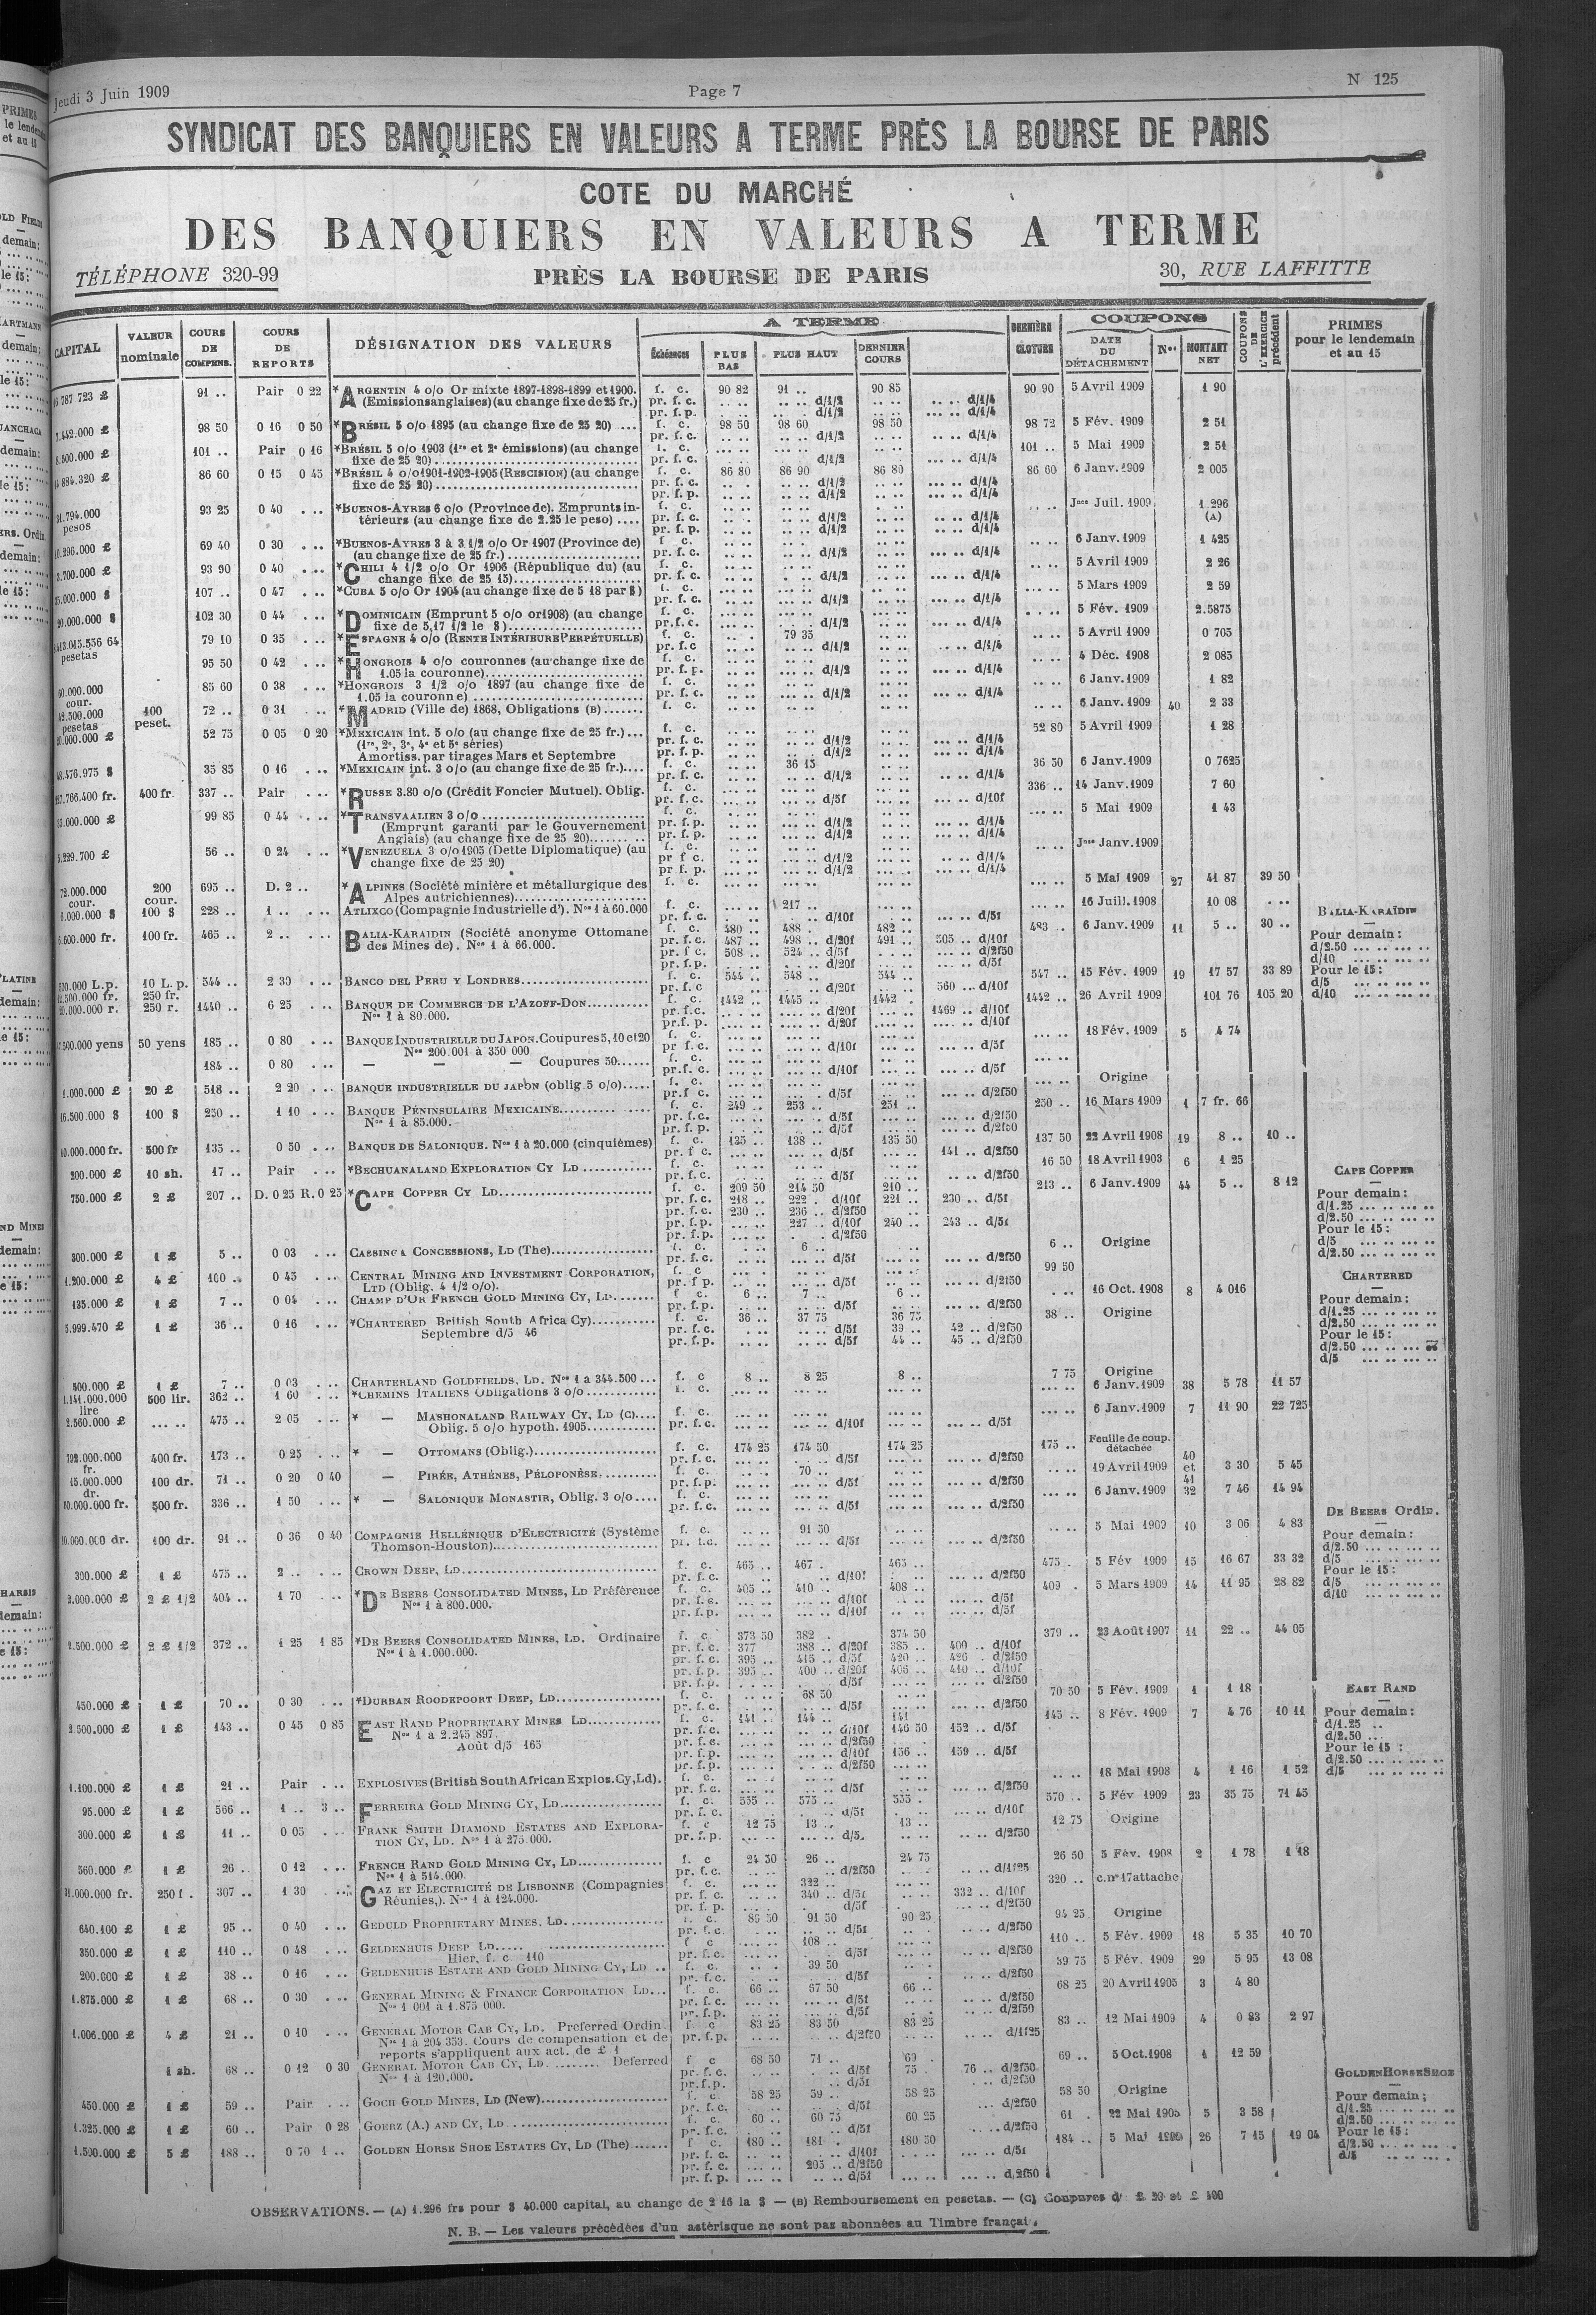 Jeudi 3 Juin 1909
Page 7
N 125
SYNDICAT DES BANQUIERS EN VALEURS A TERME PRÈS LA BOURSE DE PARIS
COTE DU MARCHÉ
DES BANQUIERS EN VALEURS A TERME
TÉLÉPHONE 320-99
PRÈS LA BOURSE DE PARIS
30, RUE LAFFITTE
CAPITAL
VALEUR nominale
COURS DE COMPENS.
COURS DE REPORTS
DÉSIGNATION DES VALEURS
A TERME
Échéances
PLUS BAS
PLUS HAUT
DERNIER COURS
DERNIÈRE CLOTURE
COUPONS
DATE DU DÉTACHEMENT
Nos
MONTANT NET
COUPONS DE L'EXERCICE précédent
PRIMES pour le lendemain et au 15
91 .. Pair 0 22 *ARGENTIN 4 o/o Or mixte 1897-1898-1899 et 1900. f. c. 90 82 91 .. 90 85 90 90 5 Avril 1909 1 90
(Emissions anglaises) (au change fixe de 25 fr.) pr. f. c. d/1/2 d/1/4
pr. f. p. d/1/2 d/1/4
7.442.000 £ 98 50 0 16 0 50 *BRÉSIL 5 o/o 1895 (au change fixe de 25 20) .... f. c. 98 50 98 60 98 50 98 72 5 Fév. 1909 2 51
pr. f. c. d/1/2 d/1/4
8.500.000 £ 101 .. Pair 0 16 *BRÉSIL 5 o/o 1903 (1re et 2e émissions) (au change f. c. 101 .. 5 Mai 1909 2 51
fixe de 25 20) pr. f. c. d/1/2 d/1/4
86 60 0 15 0 45 *BRÉSIL 4 o/o 1901-1902-1905 (RESCISION) (au change f. c. 86 80 86 90 86 80 86 60 6 Janv. 1909 2 005
fixe de 25 20) pr. f. c. d/1/2 d/1/4
pr. f. p. d/1/2 d/1/4
93 25 0 40 *BUENOS-AYRES 6 o/o (Province de). Emprunts in- f. c. Jnce Juil. 1909 1.296
térieurs (au change fixe de 2.25 le peso) .... pr. f. c. d/1/2 d/1/4 (A)
pr. f. p. d/1/2 d/1/4
69 40 0 30 *BUENOS-AYRES 3 à 3 1/2 o/o Or 1907 (Province de) f. c. 6 Janv. 1909 1 425
(au change fixe de 25 fr.) pr. f. c. d/1/2 d/1/4
93 90 0 40 *CHILI 4 1/2 o/o Or 1906 (République du) (au f. c. 5 Avril 1909 2 26
change fixe de 25 15) pr. f. c. d/1/2 d/1/4
107 .. 0 47 *CUBA 5 o/o Or 1904 (au change fixe de 5 18 par $) f. c. 5 Mars 1909 2 59
pr. f. c. d/1/2 d/1/4
102 30 0 44 *DOMINICAIN (Emprunt 5 o/o or 1908) (au change f. c. 5 Fév. 1909 2.5875
fixe de 5,17 1/2 le $) pr. f. c. d/1/2 d/1/4
79 10 0 35 *ESPAGNE 4 o/o (RENTE INTÉRIEURE PERPÉTUELLE) f. c. 79 35 5 Avril 1909 0 705
pesetas pr. f. c d/1/2 d/1/4
95 50 0 42 *HONGROIS 4 o/o couronnes (au change fixe de f. c. 4 Déc. 1908 2 085
1.05 la couronne) pr. f. p. d/1/2 d/1/4
60.000.000 cour. 85 60 0 38 *HONGROIS 3 1/2 o/o 1897 (au change fixe de f. c. 6 Janv. 1909 1 82
1.05 la couronne) pr. f. c. d/1/2 d/1/4
42.500.000 pesetas 100 peset. 72 .. 0 31 *MADRID (Ville de) 1868, Obligations (B) f. c. 6 Janv. 1909 40 2 33
52 75 0 05 0 20 *MEXICAIN int. 5 o/o (au change fixe de 25 fr.) f. c. 52 80 5 Avril 1909 1 28
(1re, 2e, 3e, 4e et 5e séries) pr. f. c. d/1/2 d/1/4
Amortiss. par tirages Mars et Septembre pr. f. p. d/1/2 d/1/4
48.476.975 $ 35 85 0 16 *MEXICAIN int. 3 o/o (au change fixe de 25 fr.) f. c. 36 15 36 50 6 Janv. 1909 0 7625
pr. f. c. d/1/2 d/1/4
400 fr. 337 .. Pair *RUSSE 3.80 o/o (Crédit Foncier Mutuel). Oblig. f. c. 336 .. 14 Janv. 1909 7 60
pr. f. c. d/5f d/10f
35.000.000 £ 99 85 0 44 *TRANSVAALIEN 3 o/o f. c. 5 Mai 1909 1 43
(Emprunt garanti par le Gouvernement pr. f. p. d/1/2 d/1/4
Anglais) (au change fixe de 25 20) pr. f. p. d/1/2 d/1/4
5.229.700 £ 56 .. 0 24 *VENEZUELA 3 o/o 1905 (Dette Diplomatique) (au f. c. Jnce Janv. 1909
change fixe de 25 20) pr f c. d/1/2 d/1/4
pr. f. p. d/1/2 d/1/4
72.000.000 cour. 200 cour. 695 .. D. 2 .. *ALPINES (Société minière et métallurgique des f. c. 5 Mai 1909 27 41 87 39 50
Alpes autrichiennes)
6.000.000 $ 100 $ 228 .. 1 .. ATLIXCO (Compagnie Industrielle d'). Nos 1 à 60.000 f. c. 217 .. 16 Juill. 1908 10 08
pr. f. c. d/10f d/5f
6.600.000 fr. 100 fr. 465 .. 2 .. BALIA-KARAIDIN (Société anonyme Ottomane f. c. 480 .. 488 . 482 .. 483 .. 6 Janv. 1909 11 5 .. 30 ..
des Mines de). Nos 1 à 66.000. pr. f. c. 487 .. 498 .. d/20f 491 .. 505 .. d/10f
pr. f c. 508 .. 524 .. d/5f d/2f50
pr. f. p. d/20f d/5f
BALIA-KARAÏDIN
Pour demain:
d/2.50
d/10
Pour le 15:
d/5
d/10
10 L. p. 544 .. 2 30 BANCO DEL PERU Y LONDRES f. c. 544 .. 548 .. 544 .. 547 .. 15 Fév. 1909 19 17 57 33 89
250 fr. pr. f. c d/20f 560 ... d/10f
250 r. 1440 .. 6 25 BANQUE DE COMMERCE DE L'AZOFF-DON f. c. 1442 .. 1445 .. 1442 . 1442 .. 26 Avril 1909 101 76 105 20
Nos 1 à 80.000. pr. f. c. d/20f 1469 .. d/10f
pr. f. p. d/20f d/10f
50 yens 185 .. 0 80 BANQUE INDUSTRIELLE DU JAPON. Coupures 5, 10 et 20 f. c. 18 Fév. 1909 5 4 74
Nos 200.001 à 350 000 pr f. c. d/10f d/5f
184 .. 0 80 — — — Coupures 50 f. c.
pr. f. c. d/10f d/5f
1.000.000 £ 20 £ 518 .. 2 20 BANQUE INDUSTRIELLE DU JAPON (oblig. 5 o/o) f. c. Origine
pr. f c. d/5f d/2f50
16.500.000 $ 100 $ 250 .. 1 10 BANQUE PÉNINSULAIRE MEXICAINE f. c. 249 .. 253 .. 251 .. 250 .. 16 Mars 1909 1 7 fr. 66
Nos 1 à 85.000. pr. f. c. d/5f d/2f50
pr. f. p. d/5f d/2f50
10.000.000 fr. 500 fr 135 .. 0 50 BANQUE DE SALONIQUE. Nos 1 à 20.000 (cinquièmes) f. c. 135 .. 138 .. 135 50 137 50 22 Avril 1908 19 8 .. 10 ..
pr. f c. d/5f 141 .. d/2f50
200.000 £ 10 sh. 17 .. Pair *BECHUANALAND EXPLORATION CY LD f. c. 16 50 18 Avril 1903 6 1 25
pr. f. c. d/5f d/2f50
750.000 £ 2 £ 207 .. D. 0 25 R. 0 25 *CAPE COPPER CY LD f. c. 209 50 214 50 210 .. 213 .. 6 Janv. 1909 44 5 .. 8 12
pr. f. c. 218 .. 222 . d/10f 221 .. 230 .. d/5f
pr. f. c. 230 .. 236 .. d/2f50
pr. f. p. 227 .. d/10f 240 .. 243 .. d/5f
pr. f. p. d/2f50
CAPE COPPER
Pour demain:
d/1.25
d/2.50
Pour le 15:
d/5
d/2.50
300.000 £ 1 £ 5 .. 0 03 CASSINGA CONCESSIONS, LD (The) f. c. 6 .. 6 .. Origine
pr. f. c. d/5f d/2f50
1.200.000 £ 4 £ 100 .. 0 45 CENTRAL MINING AND INVESTMENT CORPORATION, f. c 99 50
LTD (Oblig. 4 1/2 o/o). pr. f p. d/5f d/2f50 16 Oct. 1908 8 4 016
135.000 £ 1 £ 7 .. 0 04 CHAMP D'OR FRENCH GOLD MINING CY, LD f c. 6 .. 7 .. 6 ..
pr. f. p. d/5f d/2f50
5.999.470 £ 1 £ 36 .. 0 16 *CHARTERED British South Africa Cy) f. c. 36 .. 37 75 36 75 38 .. Origine
Septembre d/5 46 pr. f. c. d/5f 39 .. 42 .. d/2f50
pr. f. p. d/5f 44 .. 45 .. d/2f50
CHARTERED
Pour demain:
d/1.25
d/2.50
Pour le 15:
d/2.50
d/5
500.000 £ 1 £ 7 .. 0 03 CHARTERLAND GOLDFIELDS, LD. Nos 1 a 344.500 f. c 8 .. 8 25 8 .. 7 75 Origine
1.141.000.000 lire 500 lir. 362 .. 1 60 *CHEMINS ITALIENS Obligations 3 o/o f. c. 6 Janv. 1909 38 5 78 11 57
2.560.000 £ 475 .. 2 05 * — MASHONALAND RAILWAY CY, LD (C) f. c. 6 Janv. 1909 7 11 90 22 725
Oblig. 5 o/o hypoth. 1905 pr. f. c. d/10f d/5f
792.000.000 fr. 400 fr. 173 .. 0 25 * — OTTOMANS (Oblig.) f. c. 174 25 174 50 174 25 175 .. Feuille de coup. détachée
pr. f. c. d/5f d/2f50
15.000.000 dr. 100 dr. 71 .. 0 20 0 40 — PIRÉE, ATHÈNES, PÉLOPONÈSE f. c. 70 .. 19 Avril 1909 40 et 41 3 30 5 45
pr. f. p. d/5f d/2f50
500 fr. 336 .. 1 50 * — SALONIQUE MONASTIR, Oblig. 3 o/o f. c. 6 Janv. 1909 32 7 46 14 94
pr. f. c. d/5f d/2f50
100 dr. 91 .. 0 36 0 40 COMPAGNIE HELLÉNIQUE D'ELECTRICITÉ (Système f. c. 91 50 5 Mai 1909 10 3 06 4 83
Thomson-Houston) pr. f. c. d/5f d/2f50
300.000 £ 1 £ 475 .. 2 .. CROWN DEEP, LD f. c. 465 .. 467 . 465 .. 475 . 5 Fév 1909 15 16 67 33 32
pr. f. c. d/10f d/2f50
2.000.000 £ 2 £ 1/2 404 .. 1 70 *DE BEERS CONSOLIDATED MINES, LD Préférence f. c. 405 .. 410 .. 408 .. 409 . 5 Mars 1909 14 11 95 28 82
Nos 1 à 800.000. pr. f. c. d/10f d/5f
pr. f. p. d/10f d/5f
DE BEERS Ordin.
Pour demain:
d/2.50
d/5
Pour le 15:
d/5
d/10
2.500.000 £ 2 £ 1/2 372 .. 1 25 1 85 *DE BEERS CONSOLIDATED MINES, LD. Ordinaire f. c 373 50 382 . 374 50 379 .. 23 Août 1907 11 22 .. 44 05
Nos 1 à 1.000.000. pr. f. c. 377 388 .. d/20f 385 .. 400 .. d/10f
pr. f. c. 395 .. 415 .. d/5f 420 .. 426 .. d/2f50
pr. f. p. 395 .. 400 .. d/20f 406 .. 410 .. d/10f
pr. f. p. d/5f d/2f50
450.000 £ 1 £ 70 .. 0 30 *DURBAN ROODEPOORT DEEP, LD f. c. 68 50 70 50 5 Fév. 1909 1 1 18
pr. f. c. d/5f d/2f50
2.500.000 £ 1 £ 143 .. 0 45 0 85 EAST RAND PROPRIETARY MINES LD f. c. 141 .. 144 .. 141 145 .. 8 Fév. 1909 7 4 76 10 11
Nos 1 à 2.245 897. pr. f. c. d/10f 146 50 152 .. d/5f
Août d/5 165 pr. f. c. d/2f50
pr. f. p. d/10f 156 .. 159 .. d/5f
pr. f. p. d/2f50
EAST RAND
Pour demain:
d/1.25
d/2.50
Pour le 15 :
d/2.50
d/5
1.100.000 £ 1 £ 21 .. Pair EXPLOSIVES (British South African Explos. Cy, Ld). f. c. 18 Mai 1908 4 1 16 1 52
pr. f. c. d/5f d/2f50
95.000 £ 1 £ 566 .. 1 .. 3 .. FERREIRA GOLD MINING CY, LD f. c. 555 .. 575 .. 555 . 570 .. 5 Fév 1909 23 35 75 71 45
pr. f. c. d/5f d/10f
300.000 £ 1 £ 11 .. 0 05 FRANK SMITH DIAMOND ESTATES AND EXPLORA- f. c 12 75 13 .. 13 .. 12 75 Origine
TION CY, LD. Nos 1 à 275.000. pr. f. p. d/5. d/2f50
560.000 £ 1 £ 26 .. 0 12 FRENCH RAND GOLD MINING CY, LD f. c 24 50 26 .. 24 75 26 50 5 Fév. 1908 2 1 78 1 18
Nos 1 à 514.000. pr. f. c. d/2f50 d/1f25
250 f. 307 .. 1 30 GAZ ET ELECTRICITÉ DE LISBONNE (Compagnies f. c. 322 .. 320 .. c. no 17 attache
Réunies,). Nos 1 à 124.000. pr. f. c. 340 .. d/5f 332 .. d/10f
pr. f. p. d/5f d/2f50
640.100 £ 1 £ 95 .. 0 40 GEDULD PROPRIETARY MINES. LD f. c. 86 50 91 50 90 25 94 25 Origine
pr. f. c. d/5f d/2f50
350.000 £ 1 £ 110 .. 0 48 GELDENHUIS DEEP LD f c 108 .. 110 .. 5 Fév. 1909 18 5 35 10 70
Hier, f. c 110 pr. f. c. d/5f d/2f50
200.000 £ 1 £ 38 .. 0 16 GELDENHUIS ESTATE AND GOLD MINING CY, LD .. f. c. 39 50 39 75 5 Fév. 1909 29 5 95 13 08
pr. f. c. d/5f d/2f50
1.875.000 £ 1 £ 68 .. 0 30 GENERAL MINING & FINANCE CORPORATION LD f. c. 66 .. 67 50 66 .. 68 25 20 Avril 1905 3 4 80
Nos 1 001 à 1.875 000. pr. f. c. d/5f d/2f50
pr. f. p. d/5f d/2f50
1.006.000 £ 4 £ 21 .. 0 10 GENERAL MOTOR CAB CY, LD. Preferred Ordin. f c 83 25 83 50 83 25 83 .. 12 Mai 1909 4 0 83 2 97
Nos 1 à 204 353. Cours de compensation et de pr. f. p. d/2f50 d/1f25
reports s'appliquent aux act. de £ 1
1 sh. 68 .. 0 12 0 30 GENERAL MOTOR CAB CY, LD. ........ Deferred f c 68 50 71 .. 69 . 69 .. 5 Oct. 1908 4 12 59
Nos 1 à 120.000. pr. f. c. d/5f 75 . 76 .. d/2f50
pr. f. p. d/5f d/2f50
450.000 £ 1 £ 59 .. Pair GOCH GOLD MINES, LD (New) f. c. 58 25 59 .. 58 25 58 50 Origine
pr. f. c. d/5f d/2f50
1.325.000 £ 1 £ 60 .. Pair 0 28 GOERZ (A.) AND CY, LD f. c. 60 .. 60 75 60 25 61 . 22 Mai 1905 5 3 58
pr. f. c. d/5f d/2f50
1.500.000 £ 5 £ 188 .. 0 70 1 .. GOLDEN HORSE SHOE ESTATES CY, LD (The) f c. 180 .. 181 . 180 50 184 .. 5 Mai 1909 26 7 15 19 04
pr. f. c. d/10f d/5f
pr. f. c. 205 .. d/2f50
pr. f. p. d/5f d/2f50
GOLDEN HORSE SHOE
Pour demain;
d/1.25
d/2.50
Pour le 15:
d/2.50
d/5
OBSERVATIONS. — (A) 1.296 frs pour $ 40.000 capital, au change de 2 16 la $ — (B) Remboursement en pesetas. — (C) Coupures d £ 20 et £ 100
N. B. — Les valeurs précédées d'un astérisque ne sont pas abonnées au Timbre françai